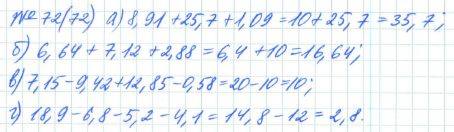 № 72(72) а) 8,91+25,7+1,09=10+25,7=35,7;
б) 6,64+7,12+2,88=6,4+10=16,64;
в) 7,15-9,42+12,85-0,58=20-10=10;
г) 18,9-6,8-5,2-4,1=14,8-12=2,8.